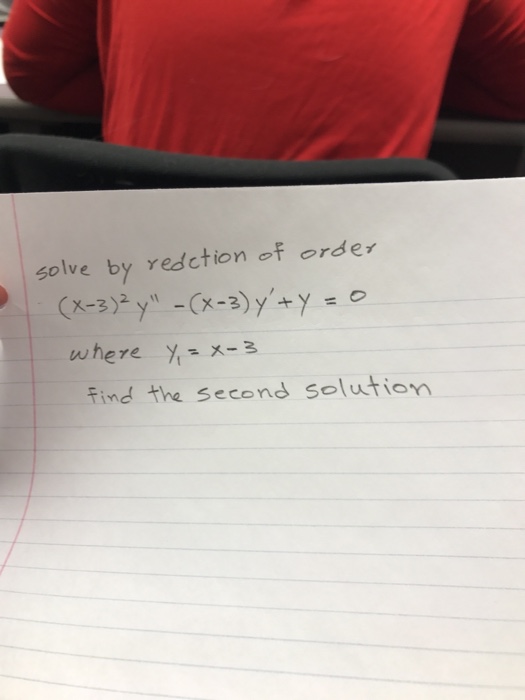 solve by redction of order
(x-3)² y" - (x-3) y' + y = 0
where y₁ = x-3
find the second solution